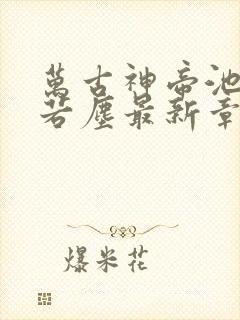 萬古神帝池
若塵最新章
爆米花